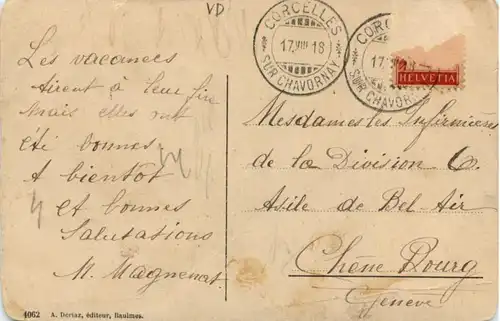 VD
CORCELLES
17.VIII.18
SUR CHAVORNAY
CORC
17.VIII.18
SUR CHAVORNAY
HELVETIA
Les vacances
tirent à leur fin
mais elles ont
été bonnes.
A bientôt
et bonnes
Salutations
M. Magnenat
Mesdames les Infirmières
de la Division 6.
Asile de Bel-Air
Chene Bourg
Genève
4062 A. Deriaz, éditeur, Baulmes.